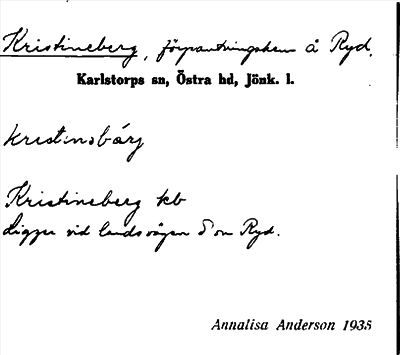 Kristineberg, förpantningshem å Ryd,
Karlstorps sn, Östra hd, Jönk. l.
kristinəbärj
Kristineberg kb
Ligger vid landsvägen S om Ryd.
Annalisa Anderson 1935